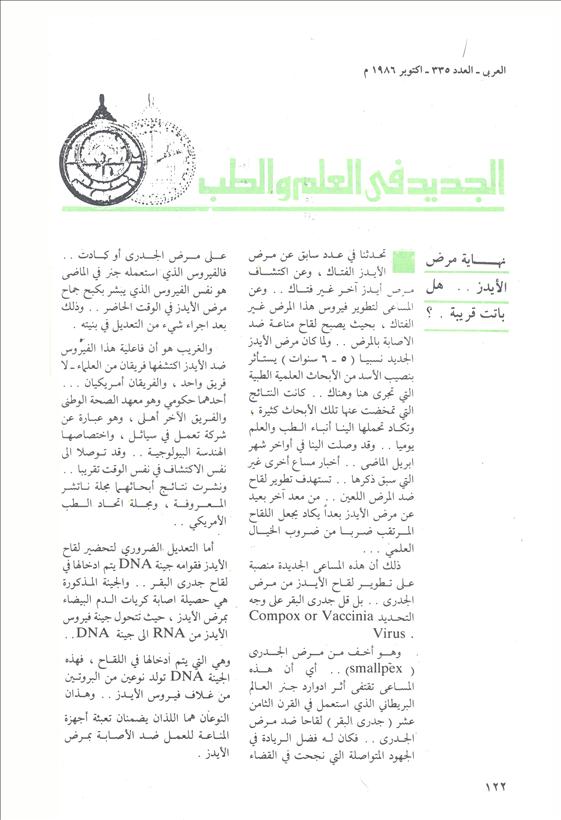 العربي ـ العدد ٣٣٥ ـ اكتوبر ١٩٨٦ م
الجديد في العلم والطب
نهاية مرض
الأيدز . . هل
باتت قريبة . ؟
تحدثنا في عدد سابق عن مرض
الأيدز الفتاك ، وعن اكتشاف
مرض أيدز آخر غير فتاك . . وعن
المساعي لتطوير فيروس هذا المرض غير
الفتاك ، بحيث يصبح لقاح مناعة ضد
الاصابة بالمرض . . ولما كان مرض الأيدز
الجديد نسبيا ( ٥ ـ ٦ سنوات ) يستأثر
بنصيب الأسد من الأبحاث العلمية الطبية
التي تجرى هنا وهناك . . كانت النتائج
التي تمخضت عنها تلك الأبحاث كثيرة ،
وتكاد تحملها الينا أنباء الطب والعلم
يوميا . . وقد وصلت الينا في أواخر شهر
ابريل الماضى . . أخبار مساع أخرى غير
التي سبق ذكرها . . تستهدف تطوير لقاح
ضد المرض اللعين . . من معد آخر بعيد
عن مرض الأيدز بعداً يكاد يجعل اللقاح
المرتقب ضربا من ضروب الخيال
العلمي . . .
ذلك أن هذه المساعى الجديدة منصبة
على تطوير لقاح الأيدز من مرض
الجدرى . . بل قل جدرى البقر على وجه
التحديد Compox or Vaccinia
Virus .
وهو أخف من مرض الجدرى
( smallpex ) . . أي أن هذه
المساعى تقتفى أثر ادوارد جنر العالم
البريطاني الذي استعمل في القرن الثامن
عشر ( جدرى البقر ) لقاحا ضد مرض
الجدرى . . فكان له فضل الريادة في
الجهود المتواصلة التي نجحت في القضاء
على مرض الجدرى أو كادت . .
فالفيروس الذي استعمله جنر في الماضى
هو نفس الفيروس الذي يبشر بكبح جماح
مرض الأيدز في الوقت الحاضر . . وذلك
بعد اجراء شيء من التعديل في بنيته .
والغريب هو أن فاعلية هذا الفيروس
ضد الأيدز اكتشفها فريقان من العلماء ـ لا
فريق واحد ، والفريقان أمريكيان . . .
أحدهما حكومي وهو معهد الصحة الوطنى
والفريق الآخر أهلى ، وهو عبارة عن
شركة تعمل في سياتل ، واختصاصها
الهندسة البيولوجية . . وقد توصلا الى
نفس الاكتشاف في نفس الوقت تقريبا . .
ونشرت نتائج أبحاثهما مجلة ناتشر
المعروفة ، ومجلة اتحاد الطب
الأمريكي . .
أما التعديل الضروري لتحضير لقاح
الأيدز فقوامه جينة DNA يتم ادخالها في
لقاح جدرى البقر . . والجينة المذكورة
هي حصيلة اصابة كريات الدم البيضاء
بمرض الأيدز ، حيث تتحول جينة فيروس
الأيدز من RNA الى جينة DNA . .
وهي التي يتم ادخالها في اللقاح ، فهذه
الجينة DNA تولد نوعين من البروتين
من غلاف فيروس الأيدز . . وهذان
النوعان هما اللذان يضمنان تعبئة أجهزة
المناعة للعمل ضد الأصابة بمرض
الأيدز .
١٢٢